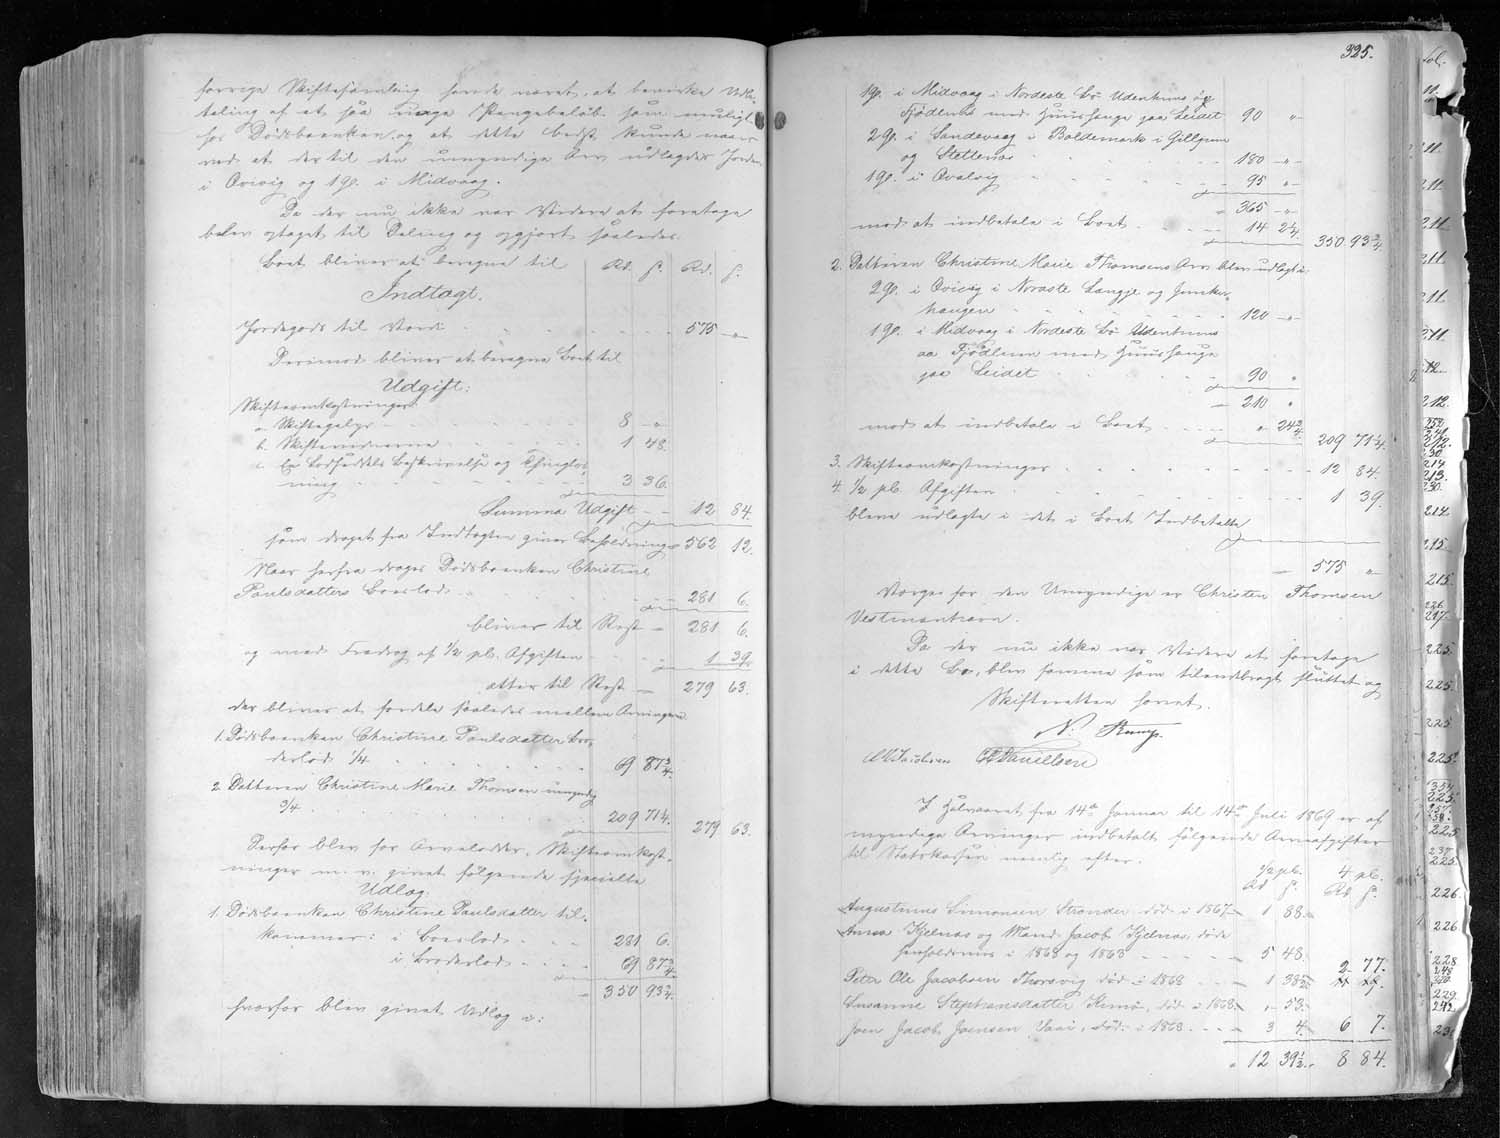 forrige Skiftesamling havde været, at bevirke Udbe-
taling af et saa Pengebeløb som muligt
hos Dødsboenken, og at dette bedst kunde naaes
ved at der til den umyndige Arv udlagdes Jorden
i Qvivig og 1 gl. i Midvaag.
Da der nu ikke var Videre at foretage
blev optaget til Deling og opgjort saaledes.
Boet bliver at beregne til Rd. ß. Rd. ß.
Indtægt.
Jordegods til Værdi 575 "
Derimod bliver at beregne Boet til
Udgift:
Skifteomkostninger:
a. Skiftegebyr 8 "
b. Skiftevidnerne 1 48.
c. En Lodseddels Beskrivelse og Thinglæs-
ning 3 36.
Summa Udgift 12 84.
som draget fra Indtægten giver Beholdning 562 12.
Naar herfra drages Dødsboenken Christine
Paulsdatters Boeslod 281 6.
bliver til Rest 281 6.
og med Fradrag af 1/2 pCt. Afgiften 1 39.
atter til Rest 279 63.
der bliver at fordele saaledes mellem Arvingerne
1. Dødsboenken Christine Paulsdatter Bro-
derlod 1/4 69 87 3/4.
2. Datteren Christine Marie Thomsen umyndig
3/4 209 71 1/4. 279 63.
Derfor blev for Arvelodder, Skifteomkost-
ninger m. v. givet følgende specielle
Udlæg.
1. Dødsboenken Christine Paulsdatter til-
kommer: i Boeslod 281 6.
i Broderlod 69 87 3/4
350 93 3/4.
hvorfor blev givet Udlæg i:
325.
1 gl. i Midvaag i Nordeste Bø Udentuns og
Fjødlenes med Huushauge paa Leidet 90 "
2 gl. i Sandevaag i Boldemark i Gillgum
og Stettenes 180 "
1 gl. i Qvalvig 95 "
365 "
mod at indbetale i Boet 14 2 1/4. 350 93 3/4.
2. Datteren Christine Marie Thomsens Arv blev udlagt i:
2 gl. i Qvivig i Noraste Langje og Junker-
haugen 120 "
1 gl. i Midvaag i Nordeste Bø Udentuns
aa Fjødlenes med Huushauge
paa Leidet 90 "
210 "
mod at indbetale i Boet " 24 3/4. 209 71 1/4.
3. Skifteomkostninger 12 84.
4. 1/2 pCt. Afgiften 1 39.
bleve udlagte i det i Boet Indbetalte
575 "
Værge for den Umyndige er Christen Thomsen
Vestmanhavn.
Da der nu ikke var Videre at foretage
i dette Bo, blev samme som tilendebragt sluttet og
Skifteretten hævet.
N. Kamp.
M Jacobsen Danielsen
I Halvaaret fra 14de Januar til 14de Juli 1869 er af
myndige Arvinger indbetalt følgende Arveafgifter
til Statskassen nemlig efter:
1/2 pCt. 4 pCt.
Rd ß. Rd ß.
Augustinus Simonsen Strender død i 1867 1 88.
Anna Kjelnæs og Mand Jacob Kjelnæs, døde
henholdsviis i 1868 og 1863 5 48. 2 77.
Peter Ole Jacobsen Thorsvig død i 1868 1 38 1/2
Susanne Stephansdatter død i 1868 " 53.
Joen Jacob Joensen død i 1868 3 4. 6 7.
" 12 39 1/2. 8 84.